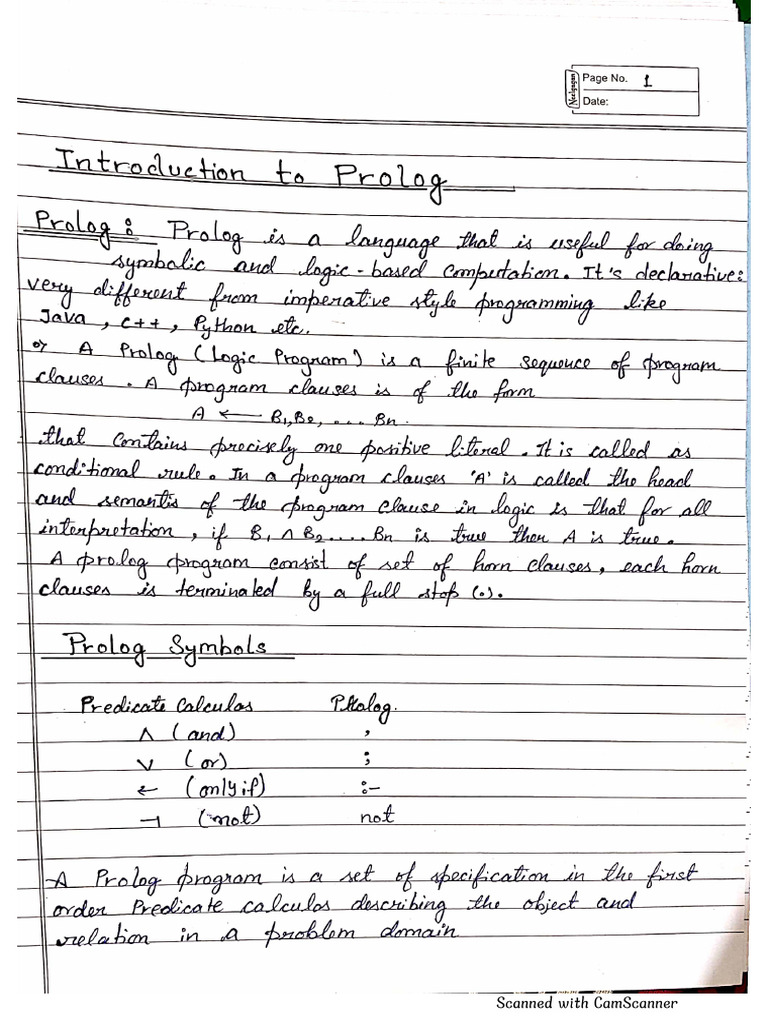 Neelgagan
Page No. 1
Date:
Introduction to Prolog
Prolog : Prolog is a language that is useful for doing
symbolic and logic-based computation. It's declarative:
very different from imperative style programming like
Java, C++, Python etc.
or A Prolog (Logic Program) is a finite sequence of program
clauses. A program clauses is of the form
A ← B1, B2, .... Bn.
that contains precisely one positive literal. It is called as
conditional rule. In a program clauses 'A' is called the head
and semantis of the program clause in logic is that for all
interpretation, if B1 ∧ B2 .... Bn is true then A is true.
A prolog program consist of set of horn clauses, each horn
clauses is terminated by a full stop (.).
Prolog Symbols
Predicate Calculas Prolog.
∧ (and) ,
∨ (or) ;
← (only if) :-
¬ (not) not
A Prolog program is a set of specification in the first
order Predicate calculas describing the object and
relation in a problem domain
Scanned with CamScanner